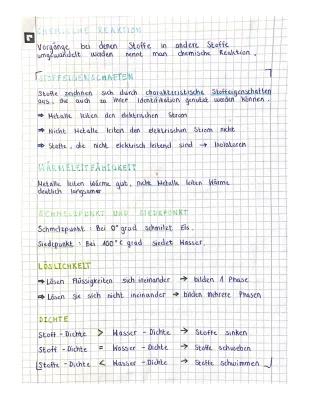 CHEMISCHE REAKTION
Vorgänge bei denen Stoffe in andere Stoffe
umgewandelt werden nennt man chemische Reaktion.
STOFFEIGENSCHAFTEN
Stoffe zeichnen sich durch charakteristische Stoffeigenschaften
aus, die auch zu ihrer Identifikation genutzt werden können.
⇒ Metalle leiten den elektrischen Strom
⇒ Nicht Metalle leiten den elektrischen Strom nicht
⇒ Stoffe, die nicht elektrisch leitend sind → Isolatoren
WÄRMELEITFÄHIGKEIT
Metalle leiten Wärme gut, nicht Metalle leiten Wärme
deutlich langsamer
SCHMELZPUNKT UND SIEDEPUNKT
Schmelzpunkt: Bei 0° grad schmilzt Eis.
Siedepunkt: Bei 100°C grad siedet Wasser.
LÖSLICHKEIT
⇒ Lösen Flüssigkeiten sich ineinander → bilden 1 Phase
⇒ Lösen Sie sich nicht ineinander → bilden Mehrere Phasen
DICHTE
Stoff-Dichte > Wasser-Dichte → Stoffe sinken
Stoff-Dichte = Wasser-Dichte → Stoffe schweben
Stoffe-Dichte < Wasser-Dichte → Stoffe schwimmen